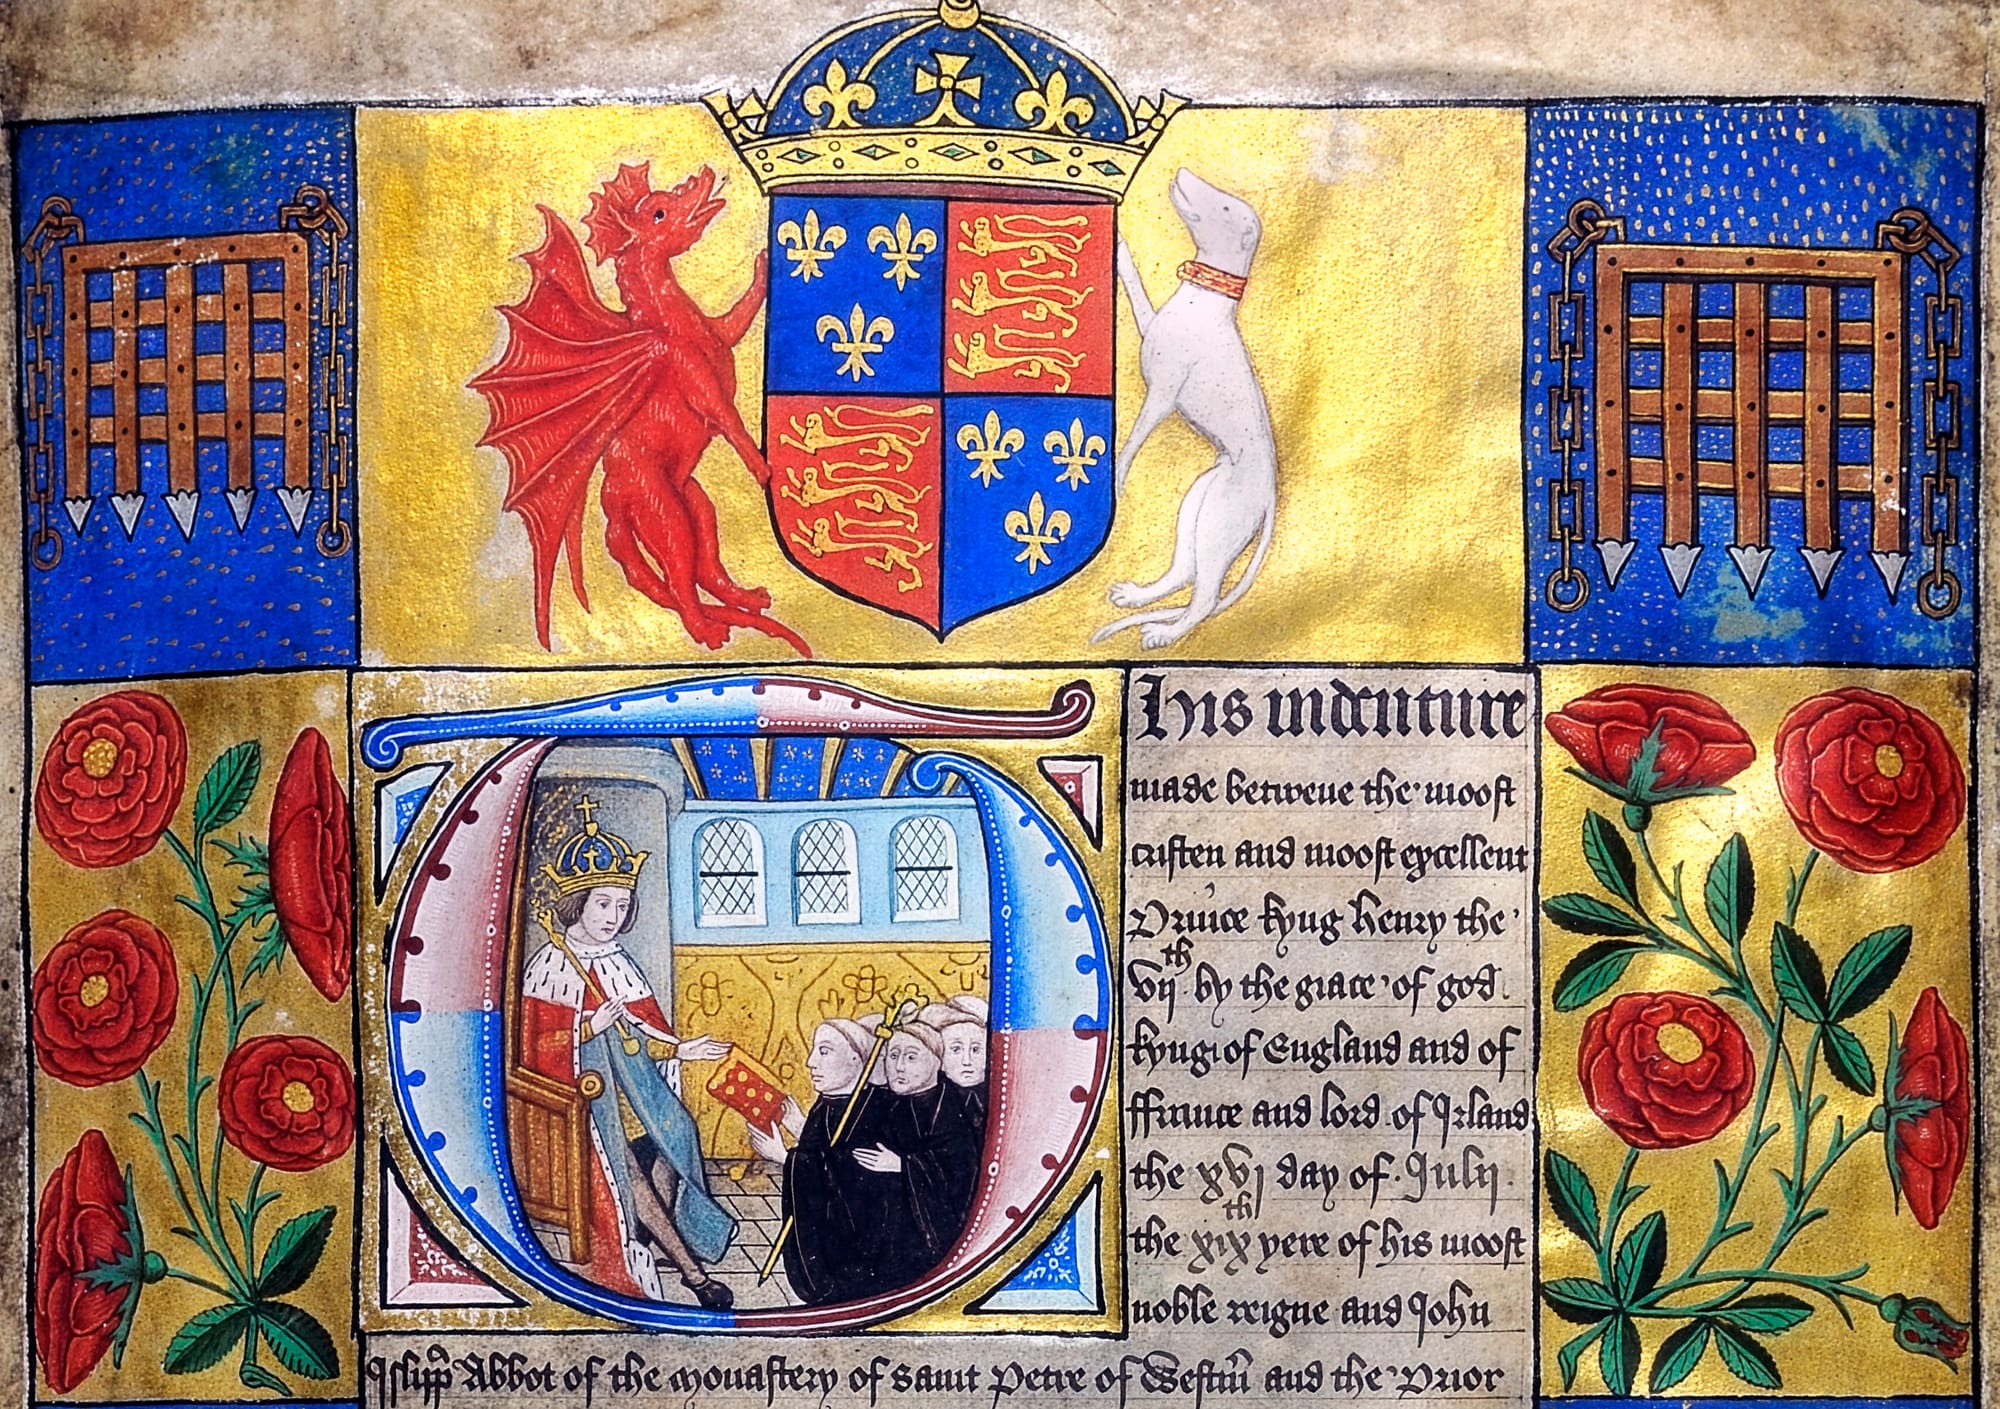 This indenture
made betwene the moost
cristen and moost excellent
Prince kyng henry the
vijth by the grace of god
kyng of England and of
ffraunce and lord of Irland
the xvj day of Julij
the xixth yere of his moost
noble reigne and John
Islipp Abbot of the monastery of saint Petre of Westm and the Prior